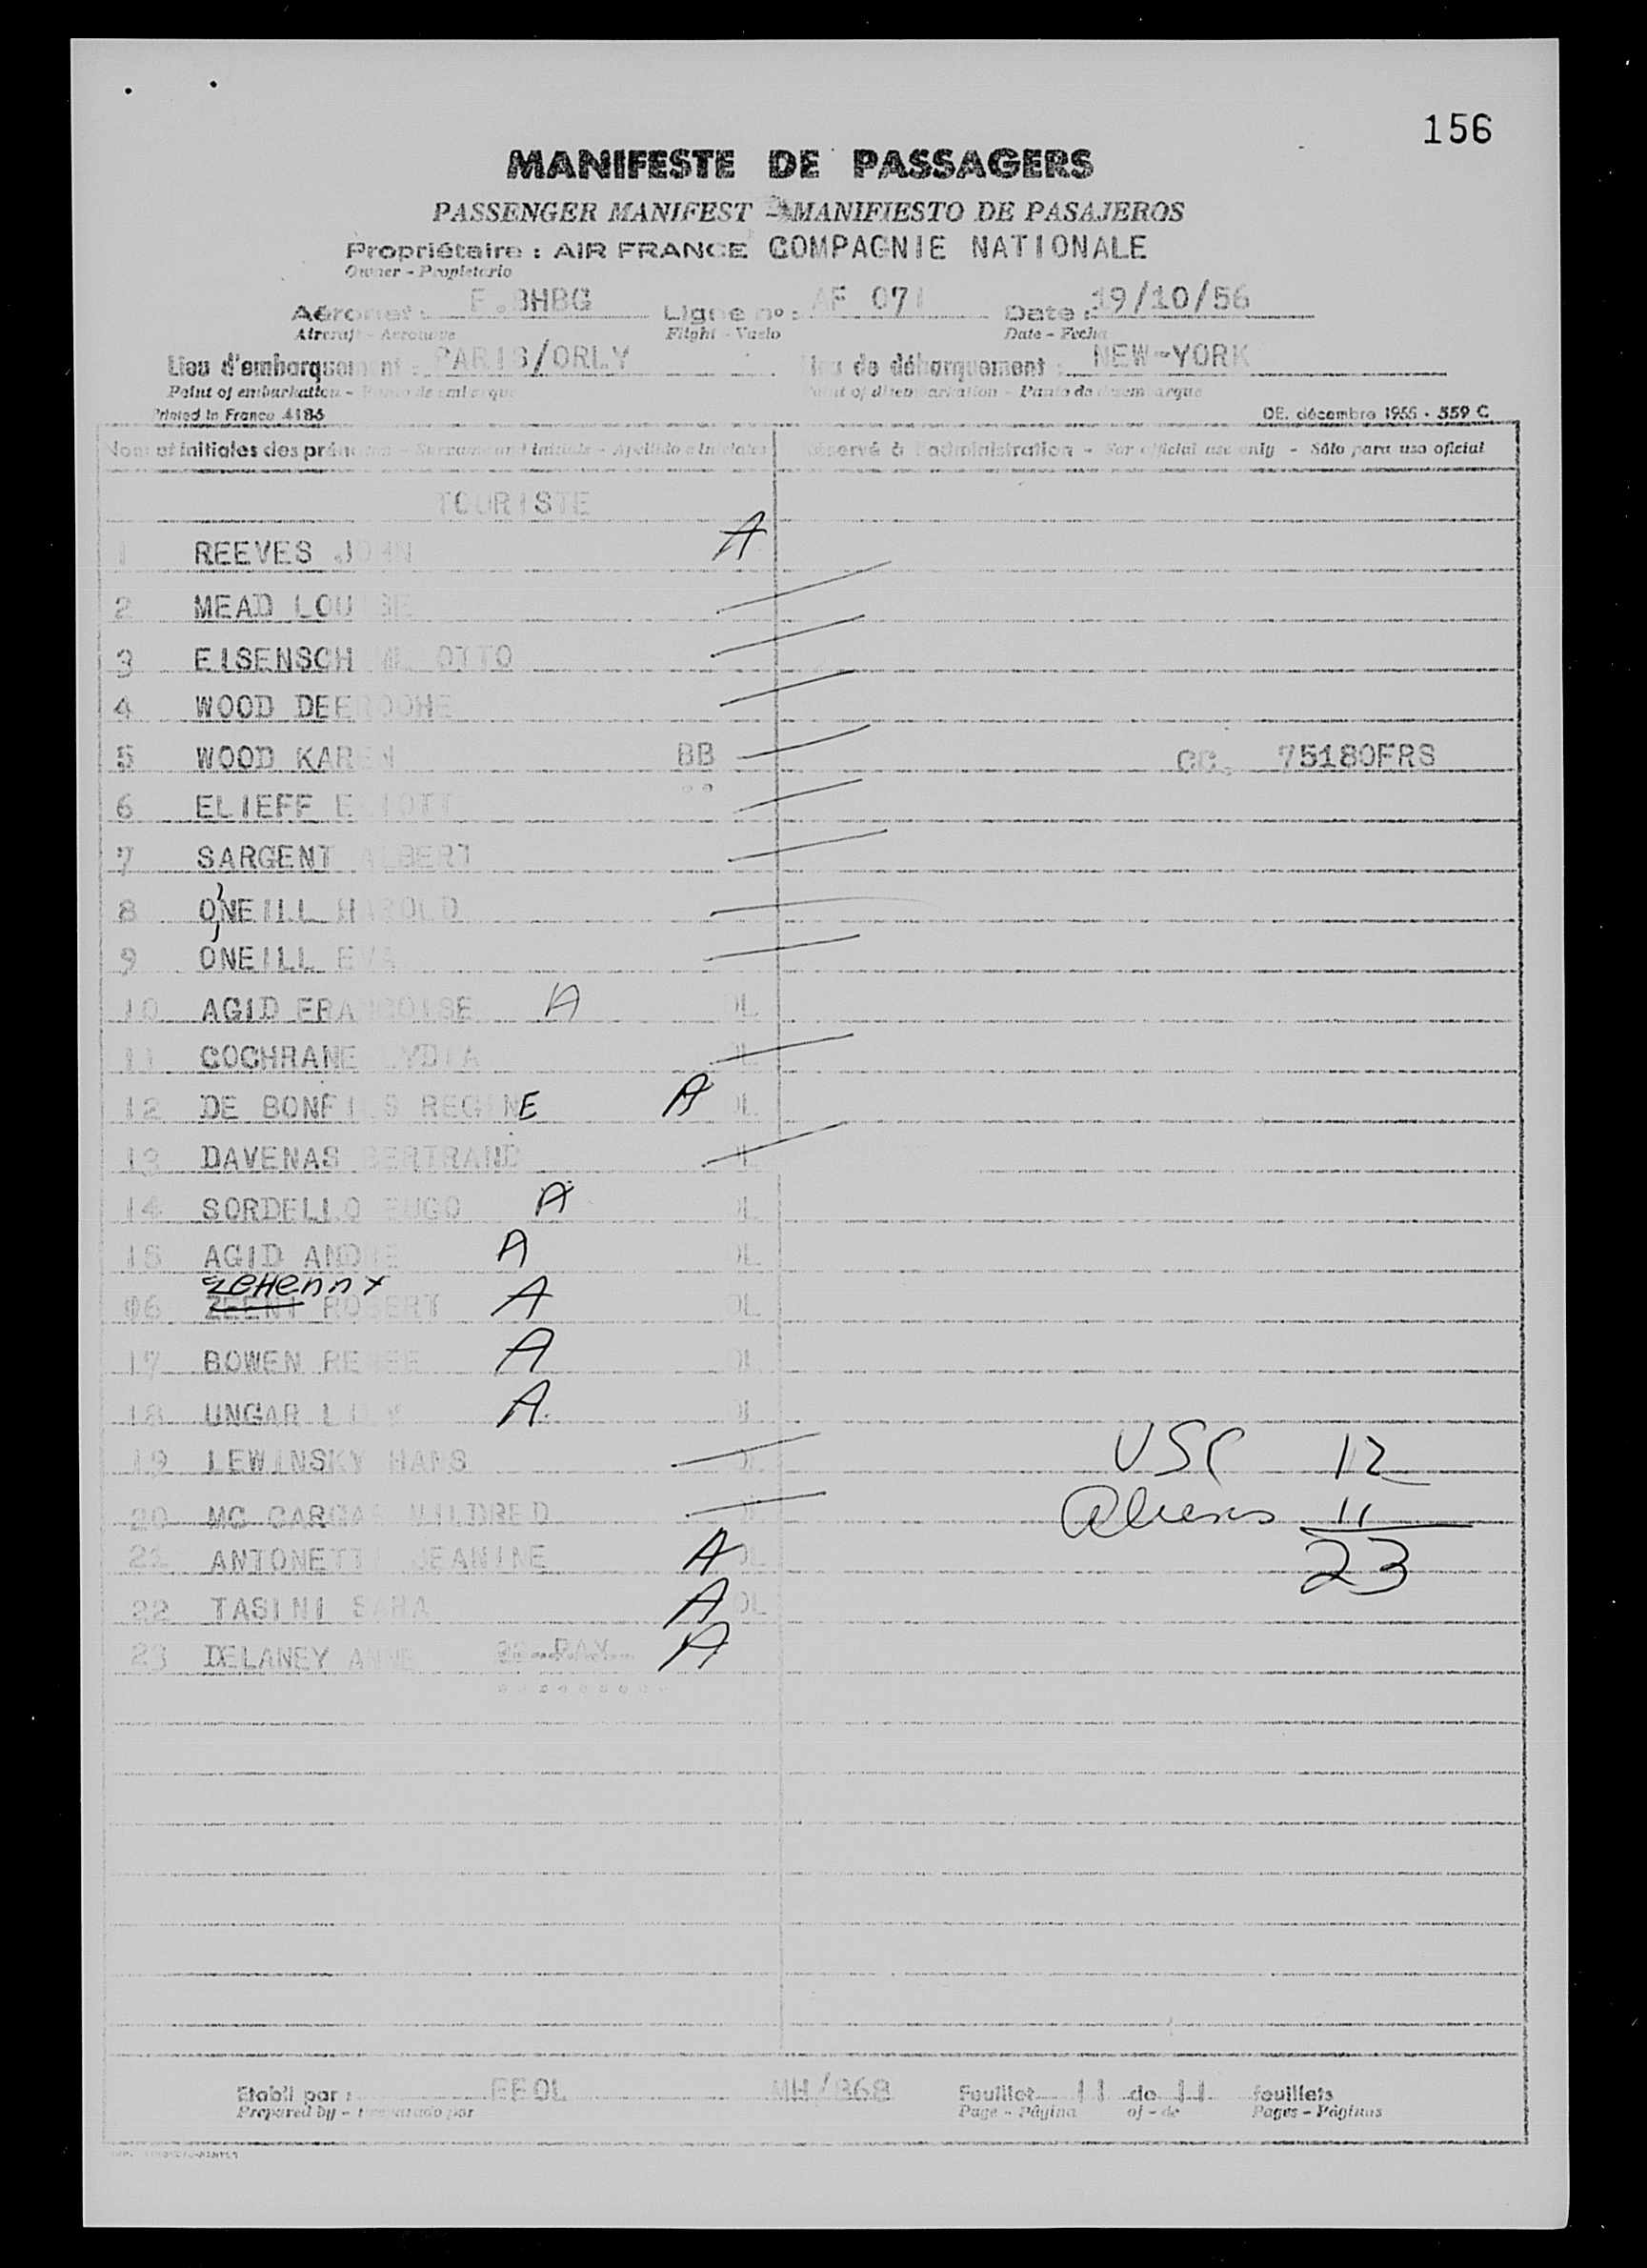 156
MANIFESTE DE PASSAGERS
PASSENGER MANIFEST - MANIFIESTO DE PASAJEROS
Propriétaire : AIR FRANCE COMPAGNIE NATIONALE
Owner - Propietario
Aéronef : F.BHBG Ligne n° : AF 071 Date : 19/10/56
Aircraft - Aeronave Flight - Vuelo Date - Fecha
Lieu d'embarquement : PARIS/ORLY Lieu de débarquement : NEW-YORK
Point of embarkation - Punto de embarque Point of disembarkation - Punto de desembarque
Printed in France 4186 DE. décembre 1955 - 559 C
Nom et initiales des prénoms - Surname and initials - Apellido e iniciales Réservé à l'administration - For official use only - Sólo para uso oficial
TOURISTE
1 REEVES JOHN A
2 MEAD LOUISE
3 EISENSCH OTTO
4 WOOD
5 WOOD KAREN BB CC. 75180FRS
6 ELIEFF
7 SARGENT ALBERT
8 O'NEILL HAROLD
9 O'NEILL EVA
10 AGID FRANCOISE A OL
11 COCHRANE LYDIA OL
12 DE BONFILS REGINE A OL
13 DAVENAS BERTRAND OL
14 SORDELLO HUGO A OL
15 AGID ANDRE A OL
zeHenny
16 ZEENI ROBERT A OL
17 BOWEN RENEE A OL
18 UNGAR LILY A OL
19 LEWINSKY HANS OL USC 12
20 MC MILDRED OL Aliens 11
21 ANTONETTI JEANINE A OL 23
22 TASINI SARA A OL
23 DELANEY ANNE A
Etabli par : FFOL MH/868 Feuillet 11 de 11 feuillets
Prepared by - Preparado por Page - Página of - de Pages - Páginas